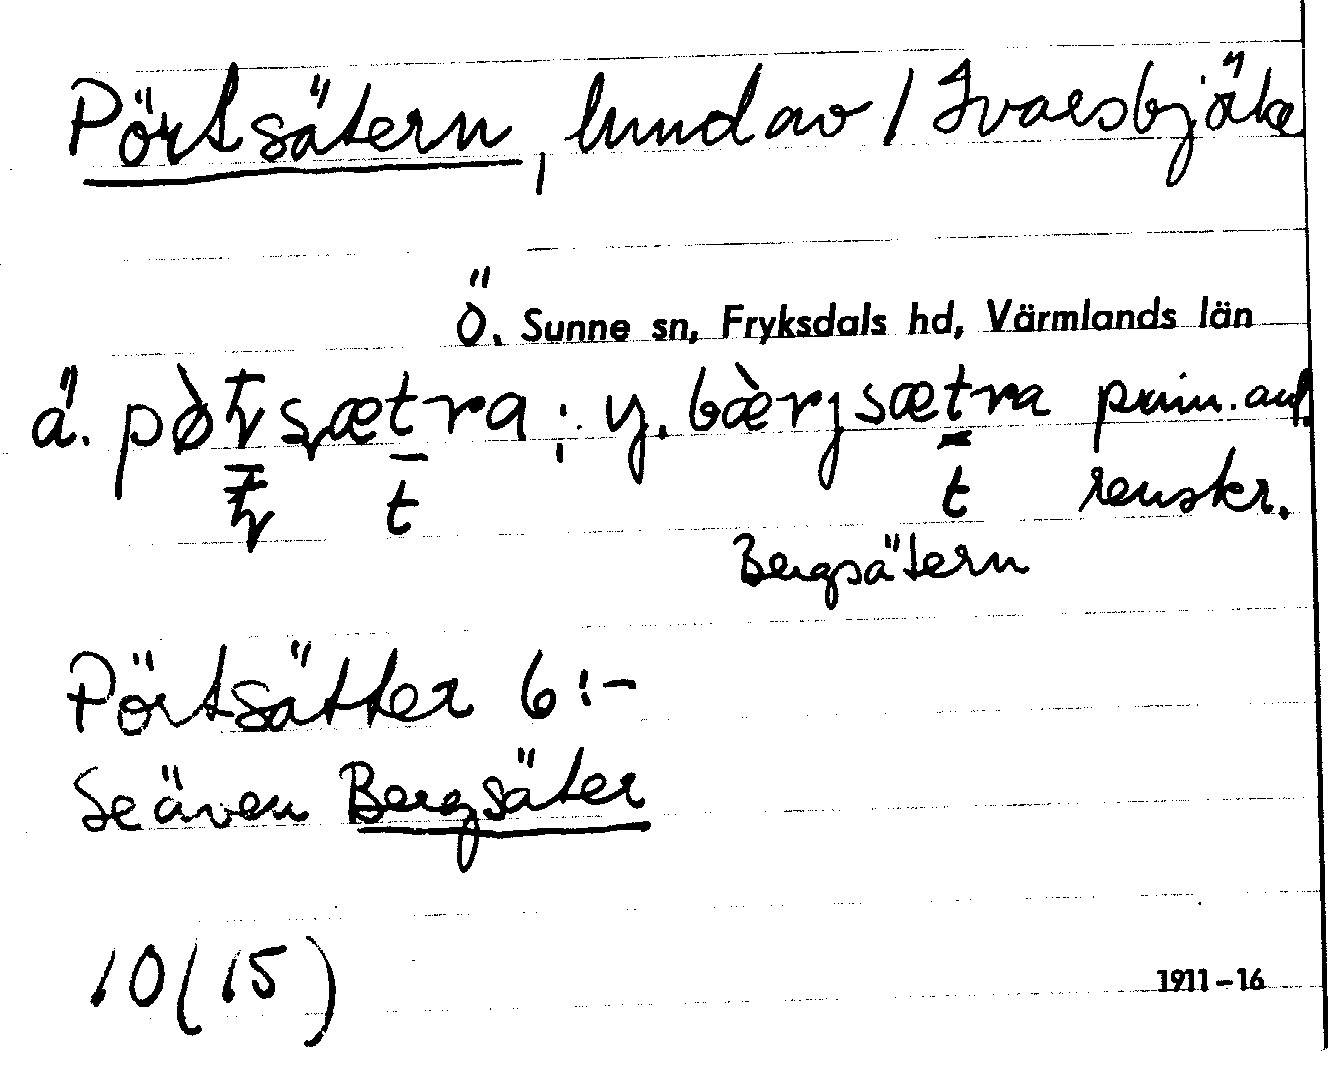 Pörtsätern, hmd av 1 Ivarsbjörke
Ö. Sunne sn, Fryksdals hd, Värmlands län
ä. sætra : y. bæ̀rjsætra prim. auf.
t t renskr.
Bergsätern
Pörtsätter 6:-
Se även Bergsäter
10(15)
1911-16